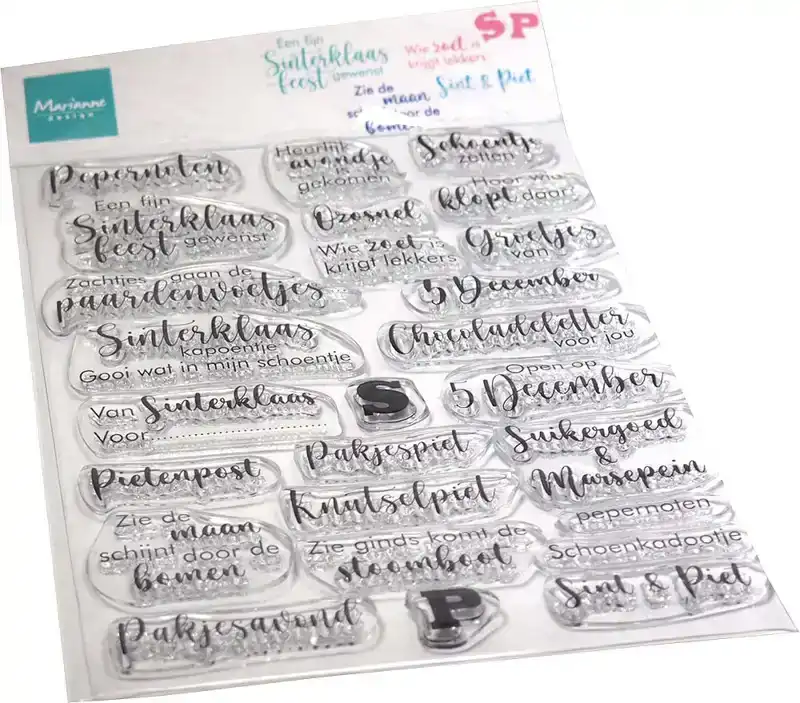 Marianne
DESIGN
Een fijn
Sinterklaas
feest gewenst
SP
Wie zoet is
krijgt lekkers
Zie de
maan
door de
bomen
Sint & Piet
Pepernoten
Heerlijk
avondje
is
gekomen
Schoentje
zetten
Een fijn
Sinterklaas
feest gewenst
Ozosnel
Hoor wie
klopt daar
Wie zoet is
krijgt lekkers
Groetjes
van
Zachtjes gaan de
paardenvoetjes
5 December
Sinterklaas
kapoentje
Gooi wat in mijn schoentje
Chocoladeletter
voor jou
Van Sinterklaas
Voor..............................
S
Open op
5 December
Pakjespiet
Suikergoed
&
Marsepein
Pietenpost
Knutselpiet
pepernoten
Zie de
maan
schijnt door de
bomen
Zie ginds komt de
stoomboot
Schoenkadootje
Pakjesavond
P
Sint & Piet